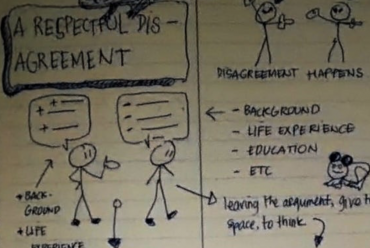 A RESPECTFUL DIS-
AGREEMENT
DISAGREEMENT HAPPENS
- BACKGROUND
- LIFE EXPERIENCE
- EDUCATION
- ETC
+ BACK-
GROUND
+ LIFE
EXPERIENCE
leaving the argument, give
space, to think